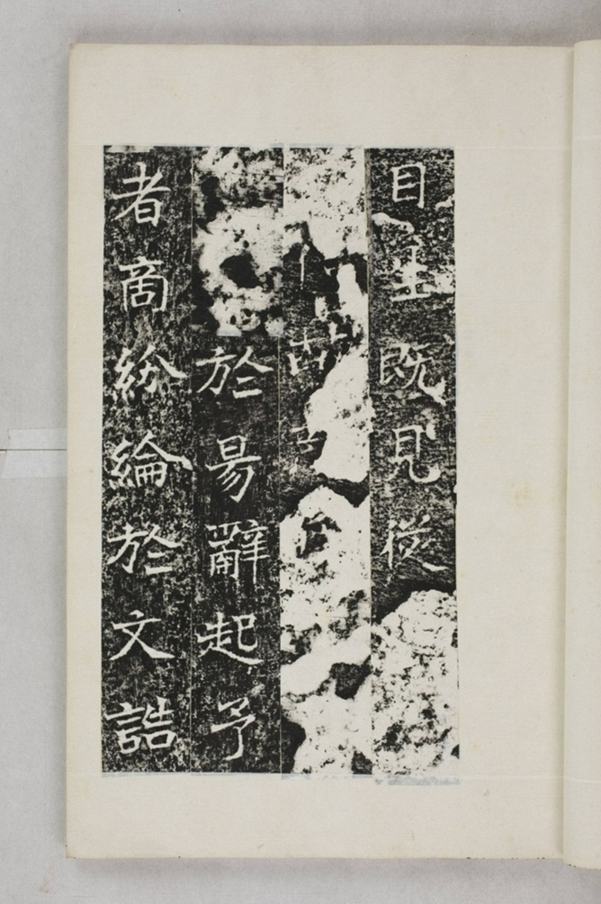 目既見從
古
於易辭起予
者商紛綸於文誥